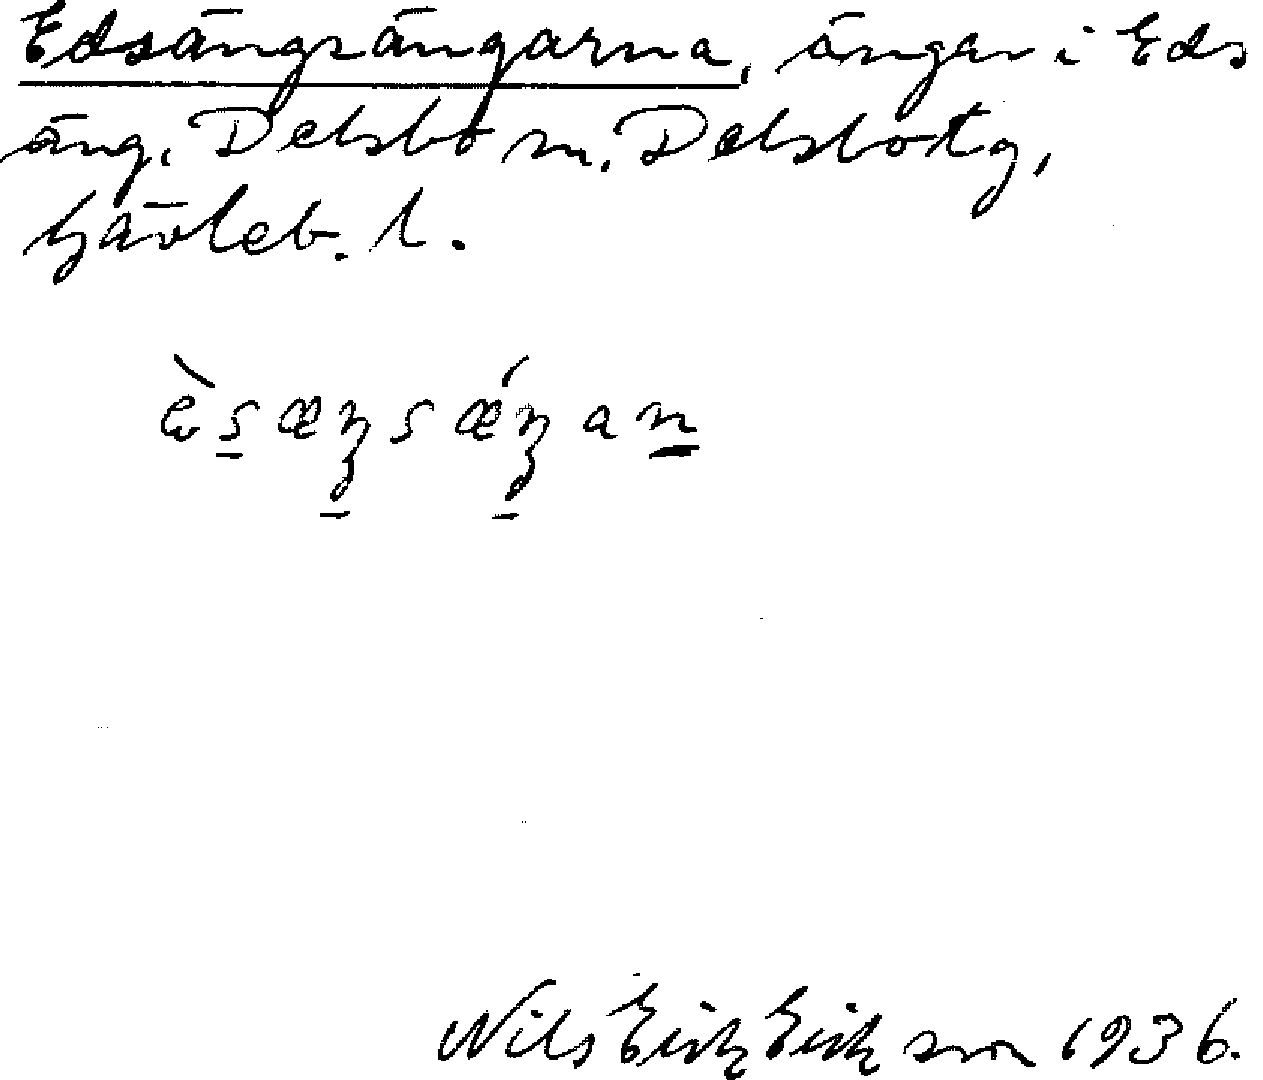 Edsängsängarna, ängar i Eds
äng. Delsbo sn. Delsbo tg,
Gävleb. l.
èsæŋsǽŋan
Nils Erik Eriksson 1936.